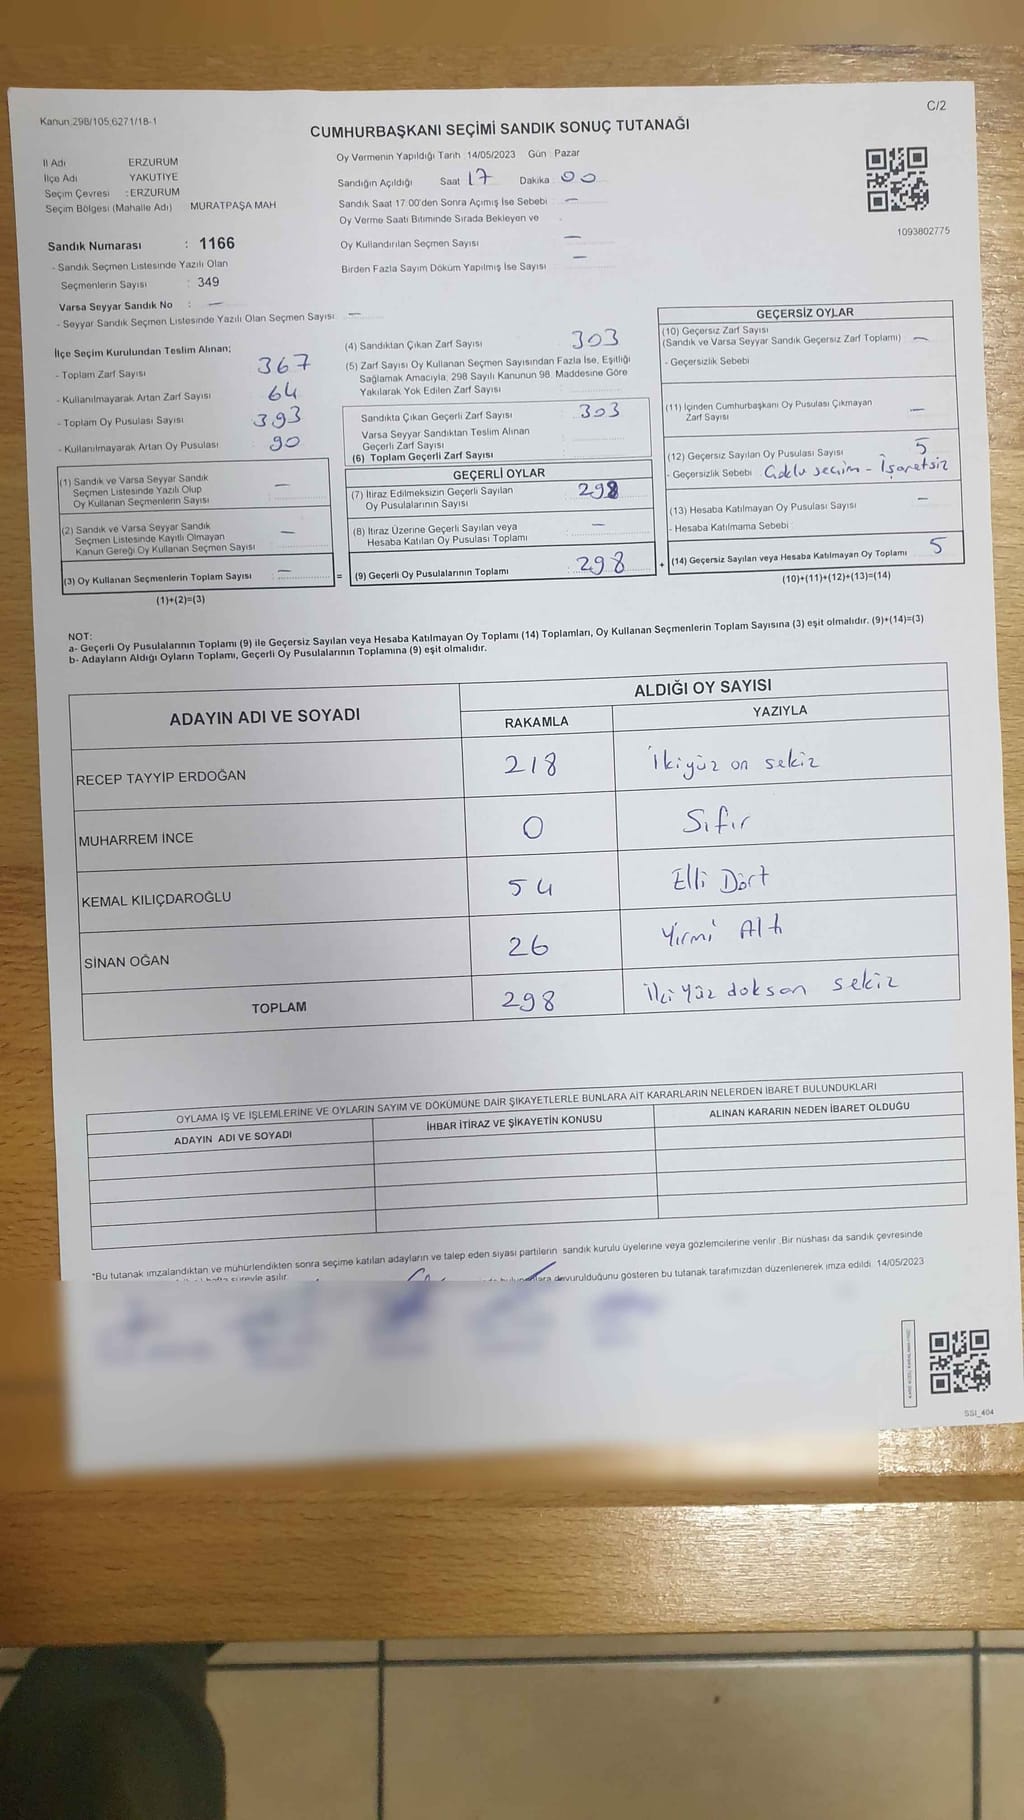 C/2
Kanun 298/105,6271/18-1
CUMHURBAŞKANI SEÇİMİ SANDIK SONUÇ TUTANAĞI
İl Adı ERZURUM
İlçe Adı YAKUTİYE
Seçim Çevresi : ERZURUM
Seçim Bölgesi (Mahalle Adı) MURATPAŞA MAH
Sandık Numarası : 1166
- Sandık Seçmen Listesinde Yazılı Olan
Seçmenlerin Sayısı : 349
Varsa Seyyar Sandık No : —
- Seyyar Sandık Seçmen Listesinde Yazılı Olan Seçmen Sayısı —
Oy Vermenin Yapıldığı Tarih 14/05/2023 Gün Pazar
Sandığın Açıldığı Saat 17 Dakika 00
Sandık Saat 17:00'den Sonra Açımış İse Sebebi —
Oy Verme Saati Bitiminde Sırada Bekleyen ve
Oy Kullandırılan Seçmen Sayısı —
Birden Fazla Sayım Döküm Yapılmış İse Sayısı —
1093802775
İlçe Seçim Kurulundan Teslim Alınan;
- Toplam Zarf Sayısı 367
- Kullanılmayarak Artan Zarf Sayısı 64
- Toplam Oy Pusulası Sayısı 393
- Kullanılmayarak Artan Oy Pusulası 90
(1) Sandık ve Varsa Seyyar Sandık
Seçmen Listesinde Yazılı Olup
Oy Kullanan Seçmenlerin Sayısı —
(2) Sandık ve Varsa Seyyar Sandık
Seçmen Listesinde Kayıtlı Olmayan
Kanun Gereği Oy Kullanan Seçmen Sayısı —
(3) Oy Kullanan Seçmenlerin Toplam Sayısı —
(1)+(2)=(3)
(4) Sandıktan Çıkan Zarf Sayısı 303
(5) Zarf Sayısı Oy Kullanan Seçmen Sayısından Fazla İse, Eşitliği
Sağlamak Amacıyla, 298 Sayılı Kanunun 98. Maddesine Göre
Yakılarak Yok Edilen Zarf Sayısı
Sandıkta Çıkan Geçerli Zarf Sayısı 303
Varsa Seyyar Sandıktan Teslim Alınan
Geçerli Zarf Sayısı
(6) Toplam Geçerli Zarf Sayısı
GEÇERLİ OYLAR
(7) İtiraz Edilmeksizin Geçerli Sayılan
Oy Pusulalarının Sayısı 298
(8) İtiraz Üzerine Geçerli Sayılan veya
Hesaba Katılan Oy Pusulası Toplamı —
= (9) Geçerli Oy Pusulalarının Toplamı : 298
GEÇERSİZ OYLAR
(10) Geçersiz Zarf Sayısı
(Sandık ve Varsa Seyyar Sandık Geçersiz Zarf Toplamı) —
- Geçersizlik Sebebi
(11) İçinden Cumhurbaşkanı Oy Pusulası Çıkmayan
Zarf Sayısı —
(12) Geçersiz Sayılan Oy Pusulası Sayısı 5
- Geçersizlik Sebebi Çoklu seçim - İşaretsiz
(13) Hesaba Katılmayan Oy Pusulası Sayısı —
- Hesaba Katılmama Sebebi
+ (14) Geçersiz Sayılan veya Hesaba Katılmayan Oy Toplamı 5
(10)+(11)+(12)+(13)=(14)
NOT:
a- Geçerli Oy Pusulalarının Toplamı (9) ile Geçersiz Sayılan veya Hesaba Katılmayan Oy Toplamı (14) Toplamları, Oy Kullanan Seçmenlerin Toplam Sayısına (3) eşit olmalıdır. (9)+(14)=(3)
b- Adayların Aldığı Oyların Toplamı, Geçerli Oy Pusulalarının Toplamına (9) eşit olmalıdır.
ADAYIN ADI VE SOYADI ALDIĞI OY SAYISI
RAKAMLA YAZIYLA
RECEP TAYYİP ERDOĞAN 218 İkiyüz on sekiz
MUHARREM İNCE 0 Sıfır
KEMAL KILIÇDAROĞLU 54 Elli Dört
SİNAN OĞAN 26 Yirmi Altı
TOPLAM 298 İki yüz doksan sekiz
OYLAMA İŞ VE İŞLEMLERİNE VE OYLARIN SAYIM VE DÖKÜMÜNE DAİR ŞİKAYETLERLE BUNLARA AİT KARARLARIN NELERDEN İBARET BULUNDUKLARI
ADAYIN ADI VE SOYADI İHBAR İTİRAZ VE ŞİKAYETİN KONUSU ALINAN KARARIN NEDEN İBARET OLDUĞU
*Bu tutanak imzalandıktan ve mühürlendikten sonra seçime katılan adayların ve talep eden siyasi partilerin sandık kurulu üyelerine veya gözlemcilerine verilir .Bir nüshası da sandık çevresinde
hafta süreyle asılır. devurulduğunu gösteren bu tutanak tarafımızdan düzenlenerek imza edildi 14/05/2023
SSI_404